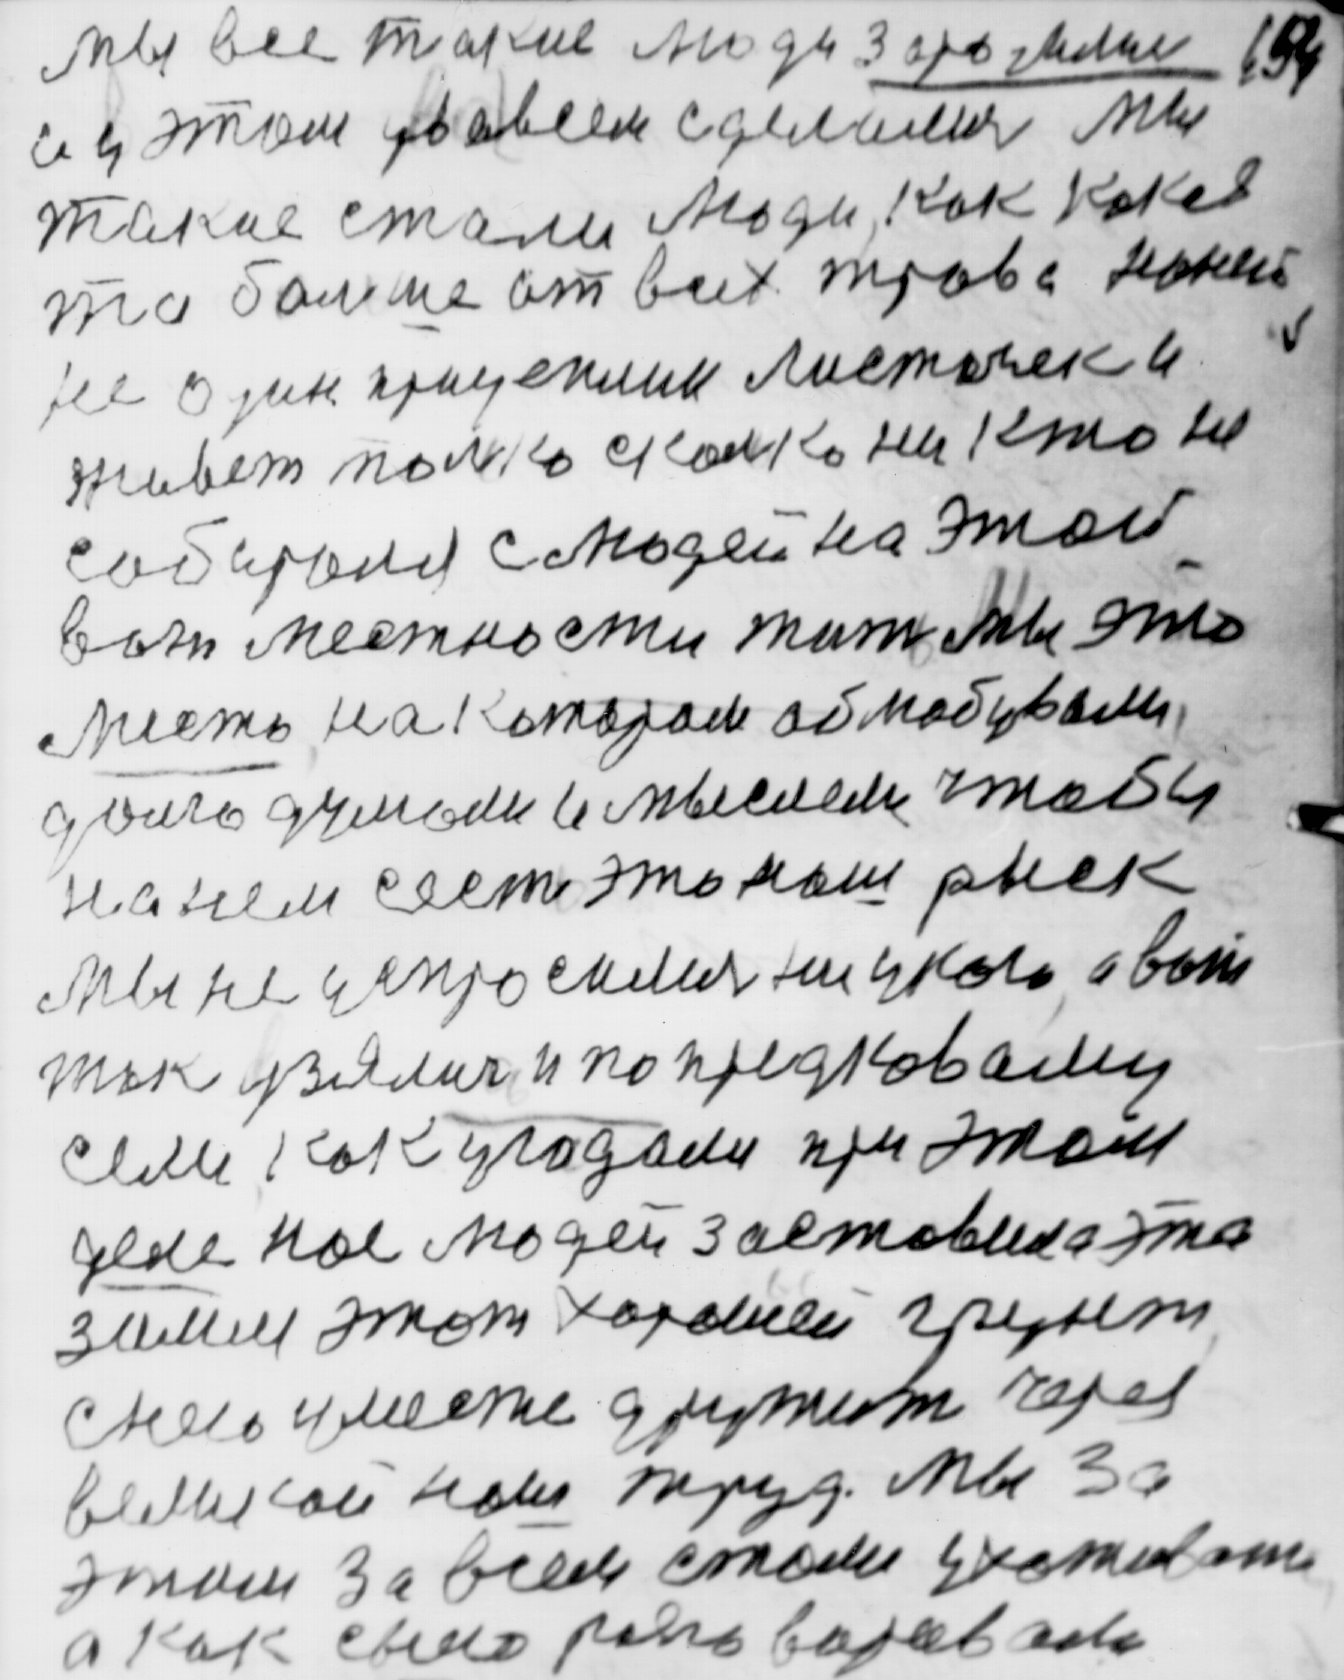 мы все такие люди зародилис 154
и у этом ува всем сделалис мы
такие стали люди, как какая
та больше от всех трава на ней
не один прицепили листочек и
живет полко сколко ни кто не
собирался с людей на этой
вот местности жить мы это
место на котором облюбували,
долго думали и мыслели чтобы
на нем сест это наш рыск
мы не упросилис ни у кого, а вот
так узялис и по предковаму
сели, как угадали при этом
деле нас людей заставила эта
замля этот хароший грунт,
с нею умести дружит через
великой наш труд. мы за
этом за всем стали ухаживать
а как с нею разговаревали